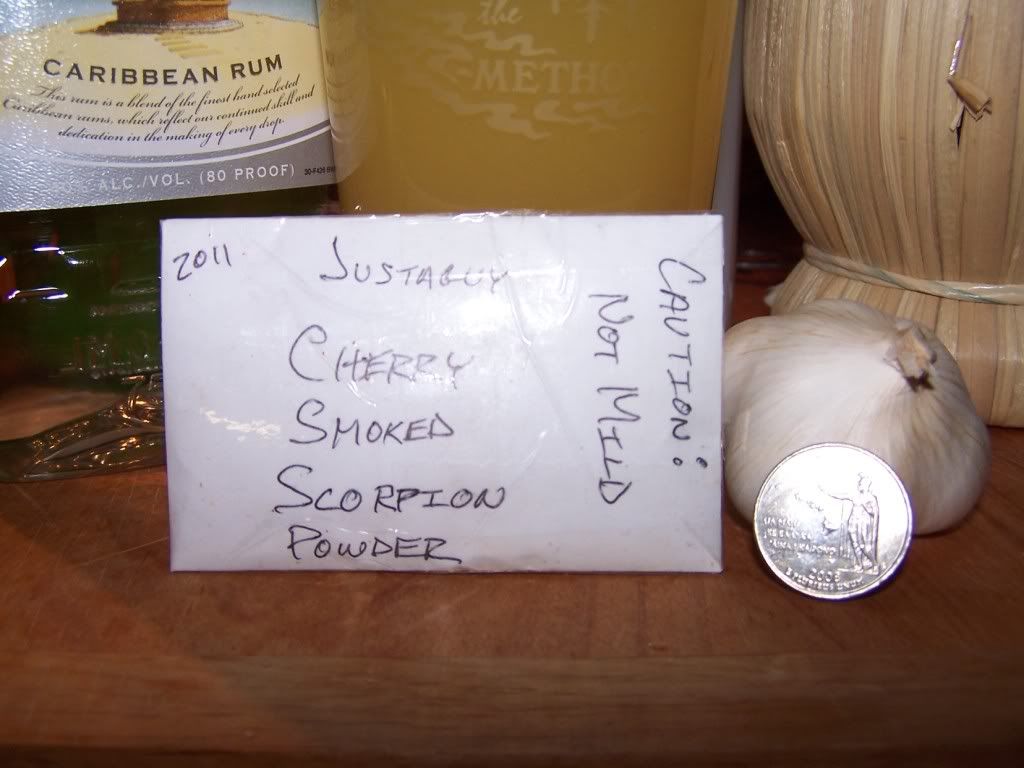 CARIBBEAN RUM
This rum is a blend of the finest hand selected
Caribbean rums, which reflect our continued skill and
dedication in the making of every drop.
ALC./VOL. (80 PROOF)
the
METHO
2011
JUSTAGUY
CHERRY
SMOKED
SCORPION
POWDER
CAUTION:
NOT MILD
2008